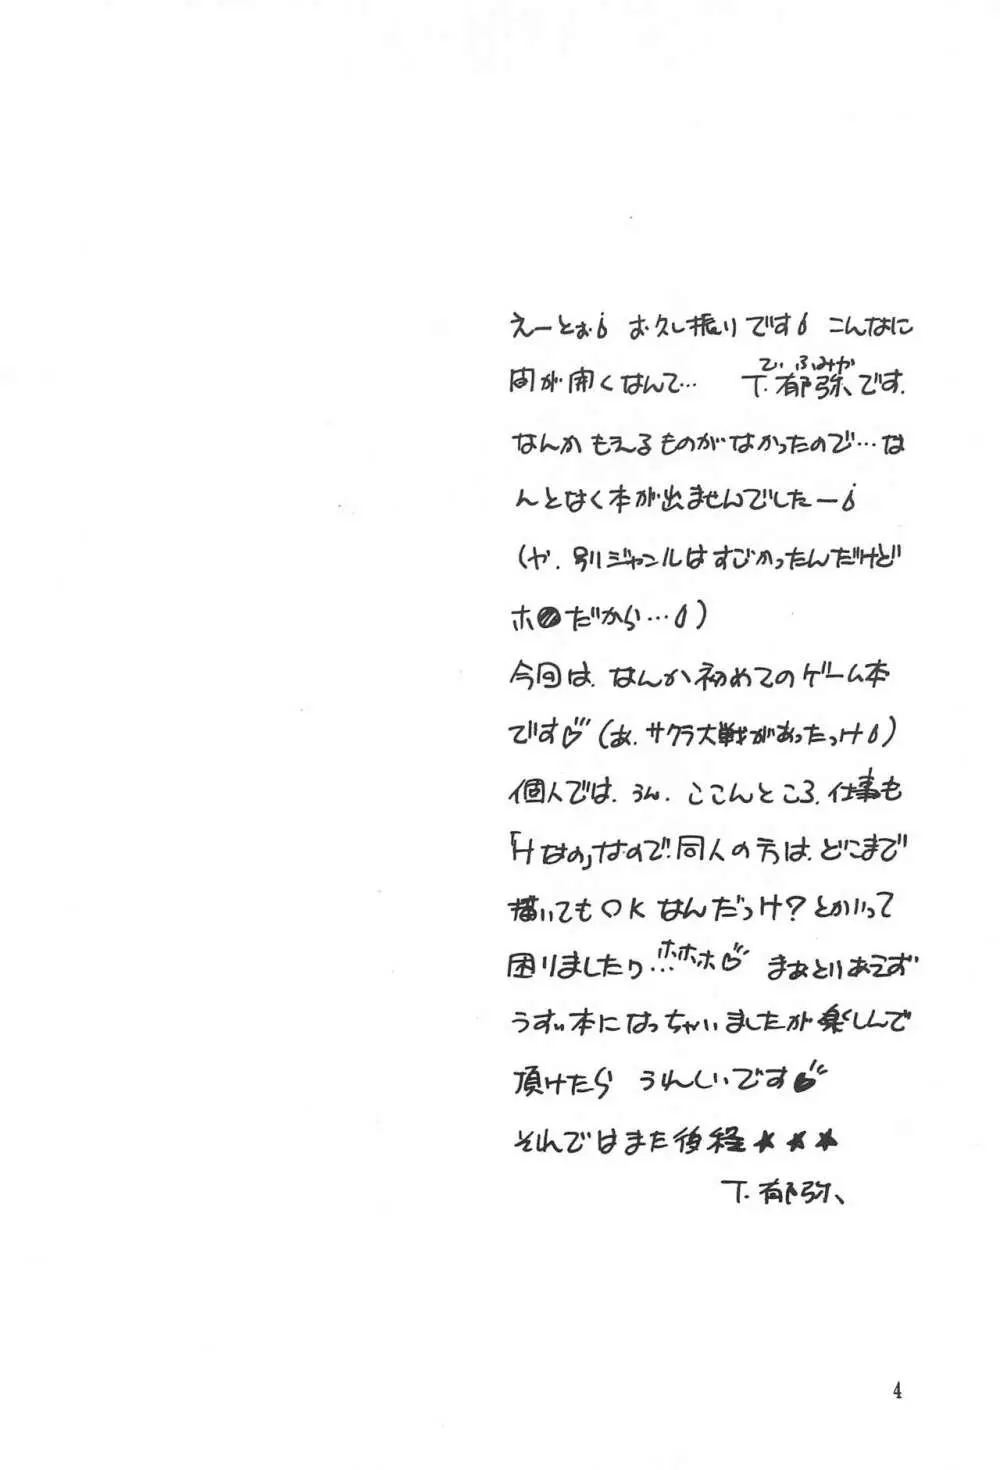 えーとぉ お久し振りです こんなに
間が開くなんて… T.郁弥、です.
てぃ ふみや
なんか もえるものがなかったので…な
んとなく本が出ませんでしたー
(や. 別ジャンルはすごかったんだけど
ホ●だから…)
今回は、なんか初めてのゲーム本
です♡(あ. サクラ大戦があったっけ)
個人では. うん. ここんところ. 仕事も
「Hなの」なので. 同人の方は. どこまで
描いてもOKなんだっけ?とかいって
困りましたり…ホホホ♡ まぁとりあえず
うすい本になっちゃいましたが楽しんで
頂けたら うれしいです♡
それではまた後程★★★
T.郁弥、
4